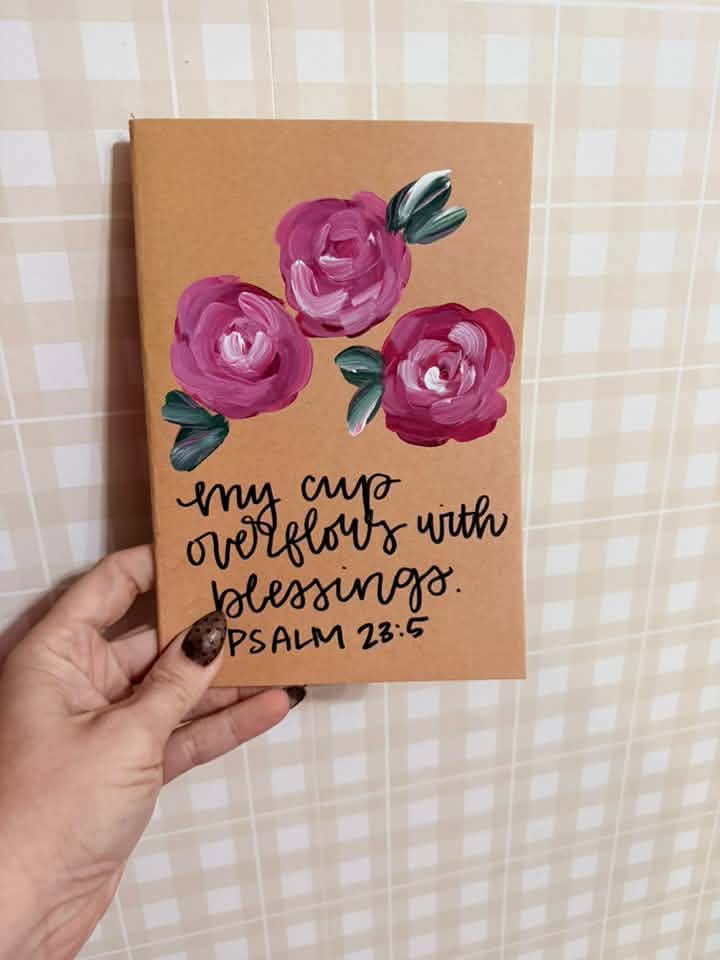 my cup
overflows with
blessings.
PSALM 23:5